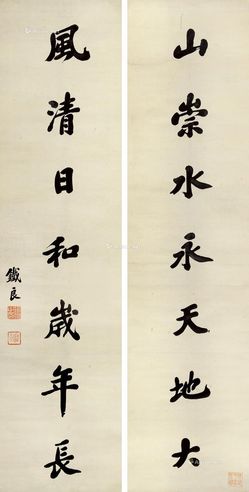 山崇水永天地大
風清日和歲年長
鐵良